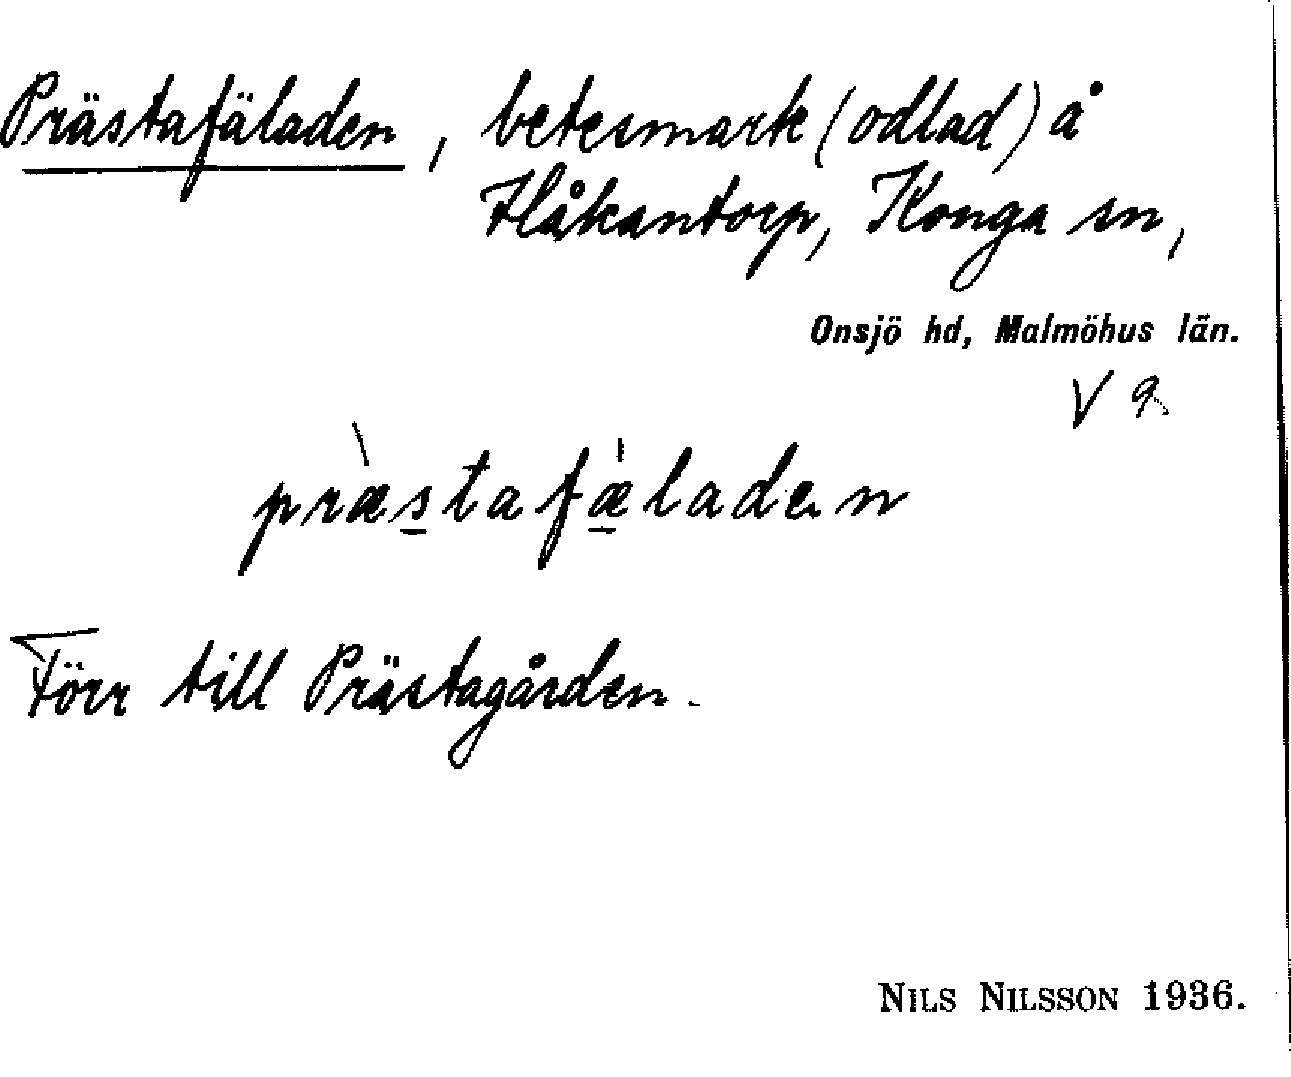 Prästafäladen, betesmark (odlad) å
Håkantorp, Konga sn,
Onsjö hd, Malmöhus län.
V 9
præ̀stafæ̍laden
Förr till Prästagården.
NILS NILSSON 1936.